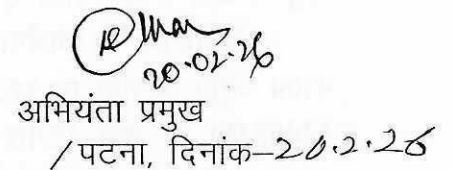 20.02.26
अभियंता प्रमुख
/पटना, दिनांक–20.2.26